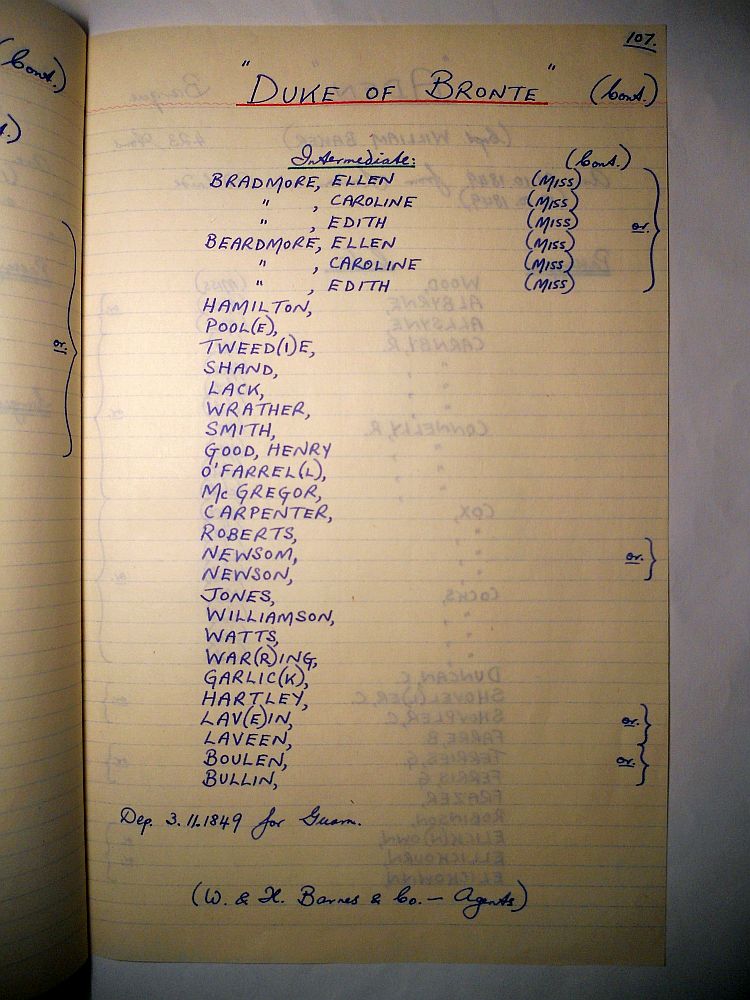 107.
"DUKE OF BRONTE" (Cont.)
Intermediate: (Cont.)
BRADMORE, ELLEN (MISS)
" , CAROLINE (MISS)
" , EDITH (MISS) or.
BEARDMORE, ELLEN (MISS)
" , CAROLINE (MISS)
" , EDITH (MISS)
HAMILTON,
POOL(E),
TWEED(I)E,
SHAND,
LACK,
WRATHER,
SMITH,
GOOD, HENRY
O'FARREL(L),
McGREGOR,
CARPENTER,
ROBERTS,
NEWSOM, or.
NEWSON,
JONES,
WILLIAMSON,
WATTS,
WAR(R)ING,
GARLIC(K),
HARTLEY,
LAV(E)IN, or.
LAVEEN,
BOULEN, or.
BULLIN,
Dep. 3.11.1849 for Guam.
(W. & H. Barnes & Co. — Agents)
(Cont.)
or.